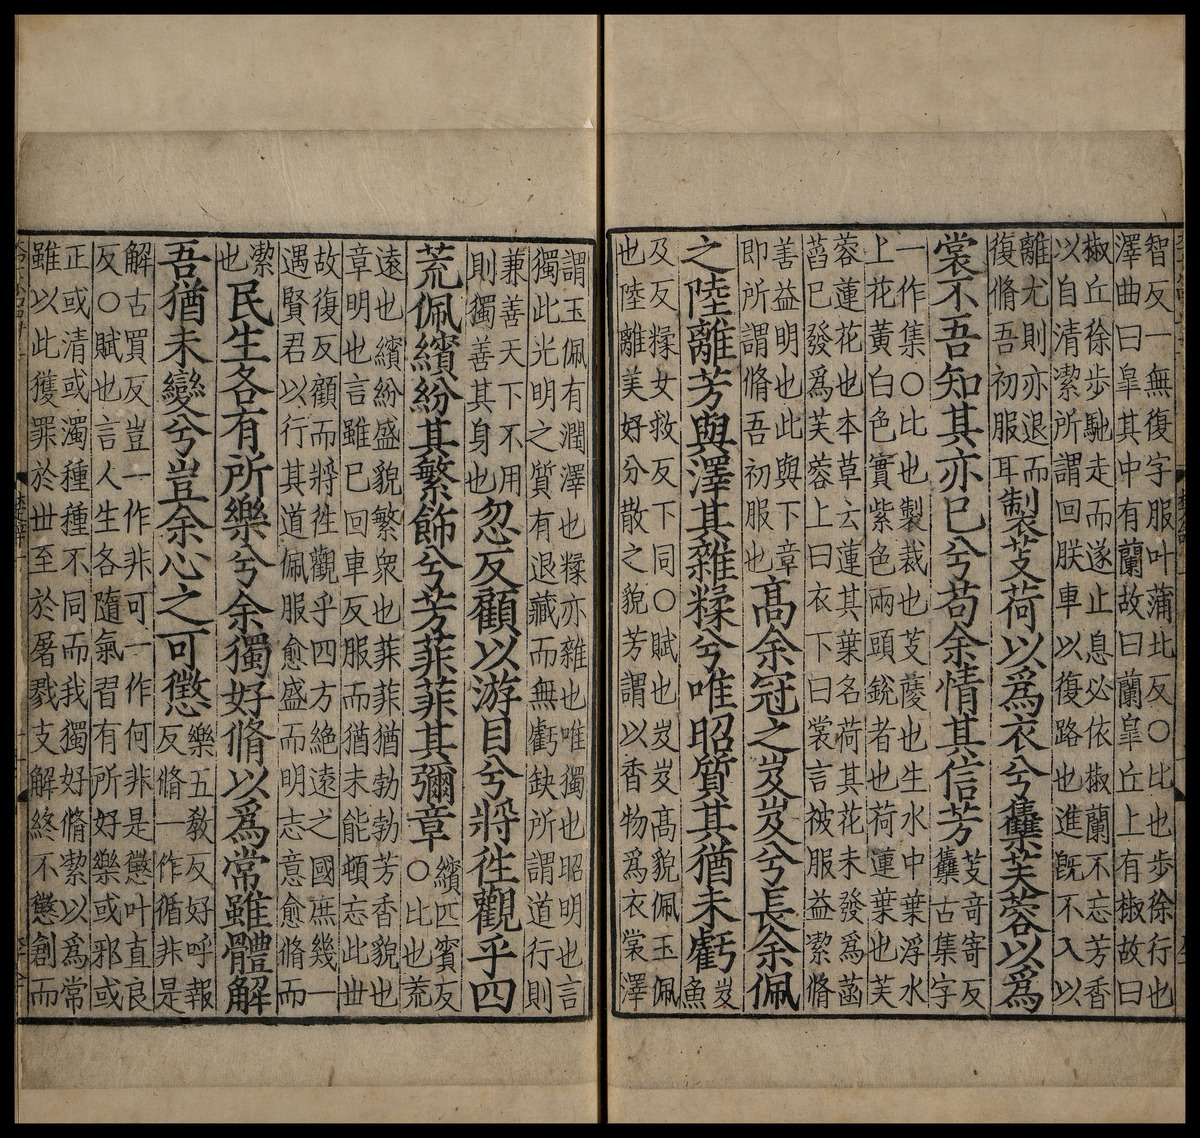 智反一無復字服叶蒲北反〇比也步徐行也
澤曲曰皐其中有蘭故曰蘭皐丘上有椒故曰
椒丘徐步馳走而遂止息必依椒蘭不忘芳香
以自清潔所謂回朕車以復路也進旣不入以
離尤則亦退而
復脩吾初服耳
製芰荷以爲衣兮雧芙蓉以爲
裳不吾知其亦已兮苟余情其信芳
芰奇寄反
雧古集字
一作集〇比也製裁也芰蔆也生水中葉浮水
上花黃白色實紫色兩頭銳者也荷蓮葉也芙
蓉蓮花也本草云蓮其葉名荷其花未發爲菡
萏已發爲芙蓉上曰衣下曰裳言被服益潔脩
善益明也此與下章
即所謂脩吾初服也
高余冠之岌岌兮長余佩
之陸離芳與澤其雜糅兮唯昭質其猶未虧
岌
魚
及反糅女救反下同〇賦也岌岌高貌佩玉佩
也陸離美好分散之貌芳謂以香物爲衣裳澤
謂玉佩有潤澤也糅亦雜也唯獨也昭明也言
獨此光明之質有退藏而無虧缺所謂道行則
兼善天下不用
則獨善其身也
忽反顧以游目兮將徃觀乎四
荒佩繽紛其繁飾兮芳菲菲其彌章
繽匹賓反
〇比也荒
遠也繽紛盛貌繁衆也菲菲猶勃勃芳香貌也
章明也言雖已回車反服而猶未能頓忘此世
故復反顧而將徃觀乎四方絶遠之國庶幾一
遇賢君以行其道佩服愈盛而明志意愈脩而
潔
也
民生各有所樂兮余獨好脩以爲常雖體解
吾猶未變兮豈余心之可懲
樂五敎反好呼報
反脩一作循非是
解古買反豈一作非可一作何非是懲叶直良
反〇賦也言人生各隨氣習有所好樂或邪或
正或清或濁種種不同而我獨好脩潔以爲常
雖以此獲罪於世至於屠戮支解終不懲創而